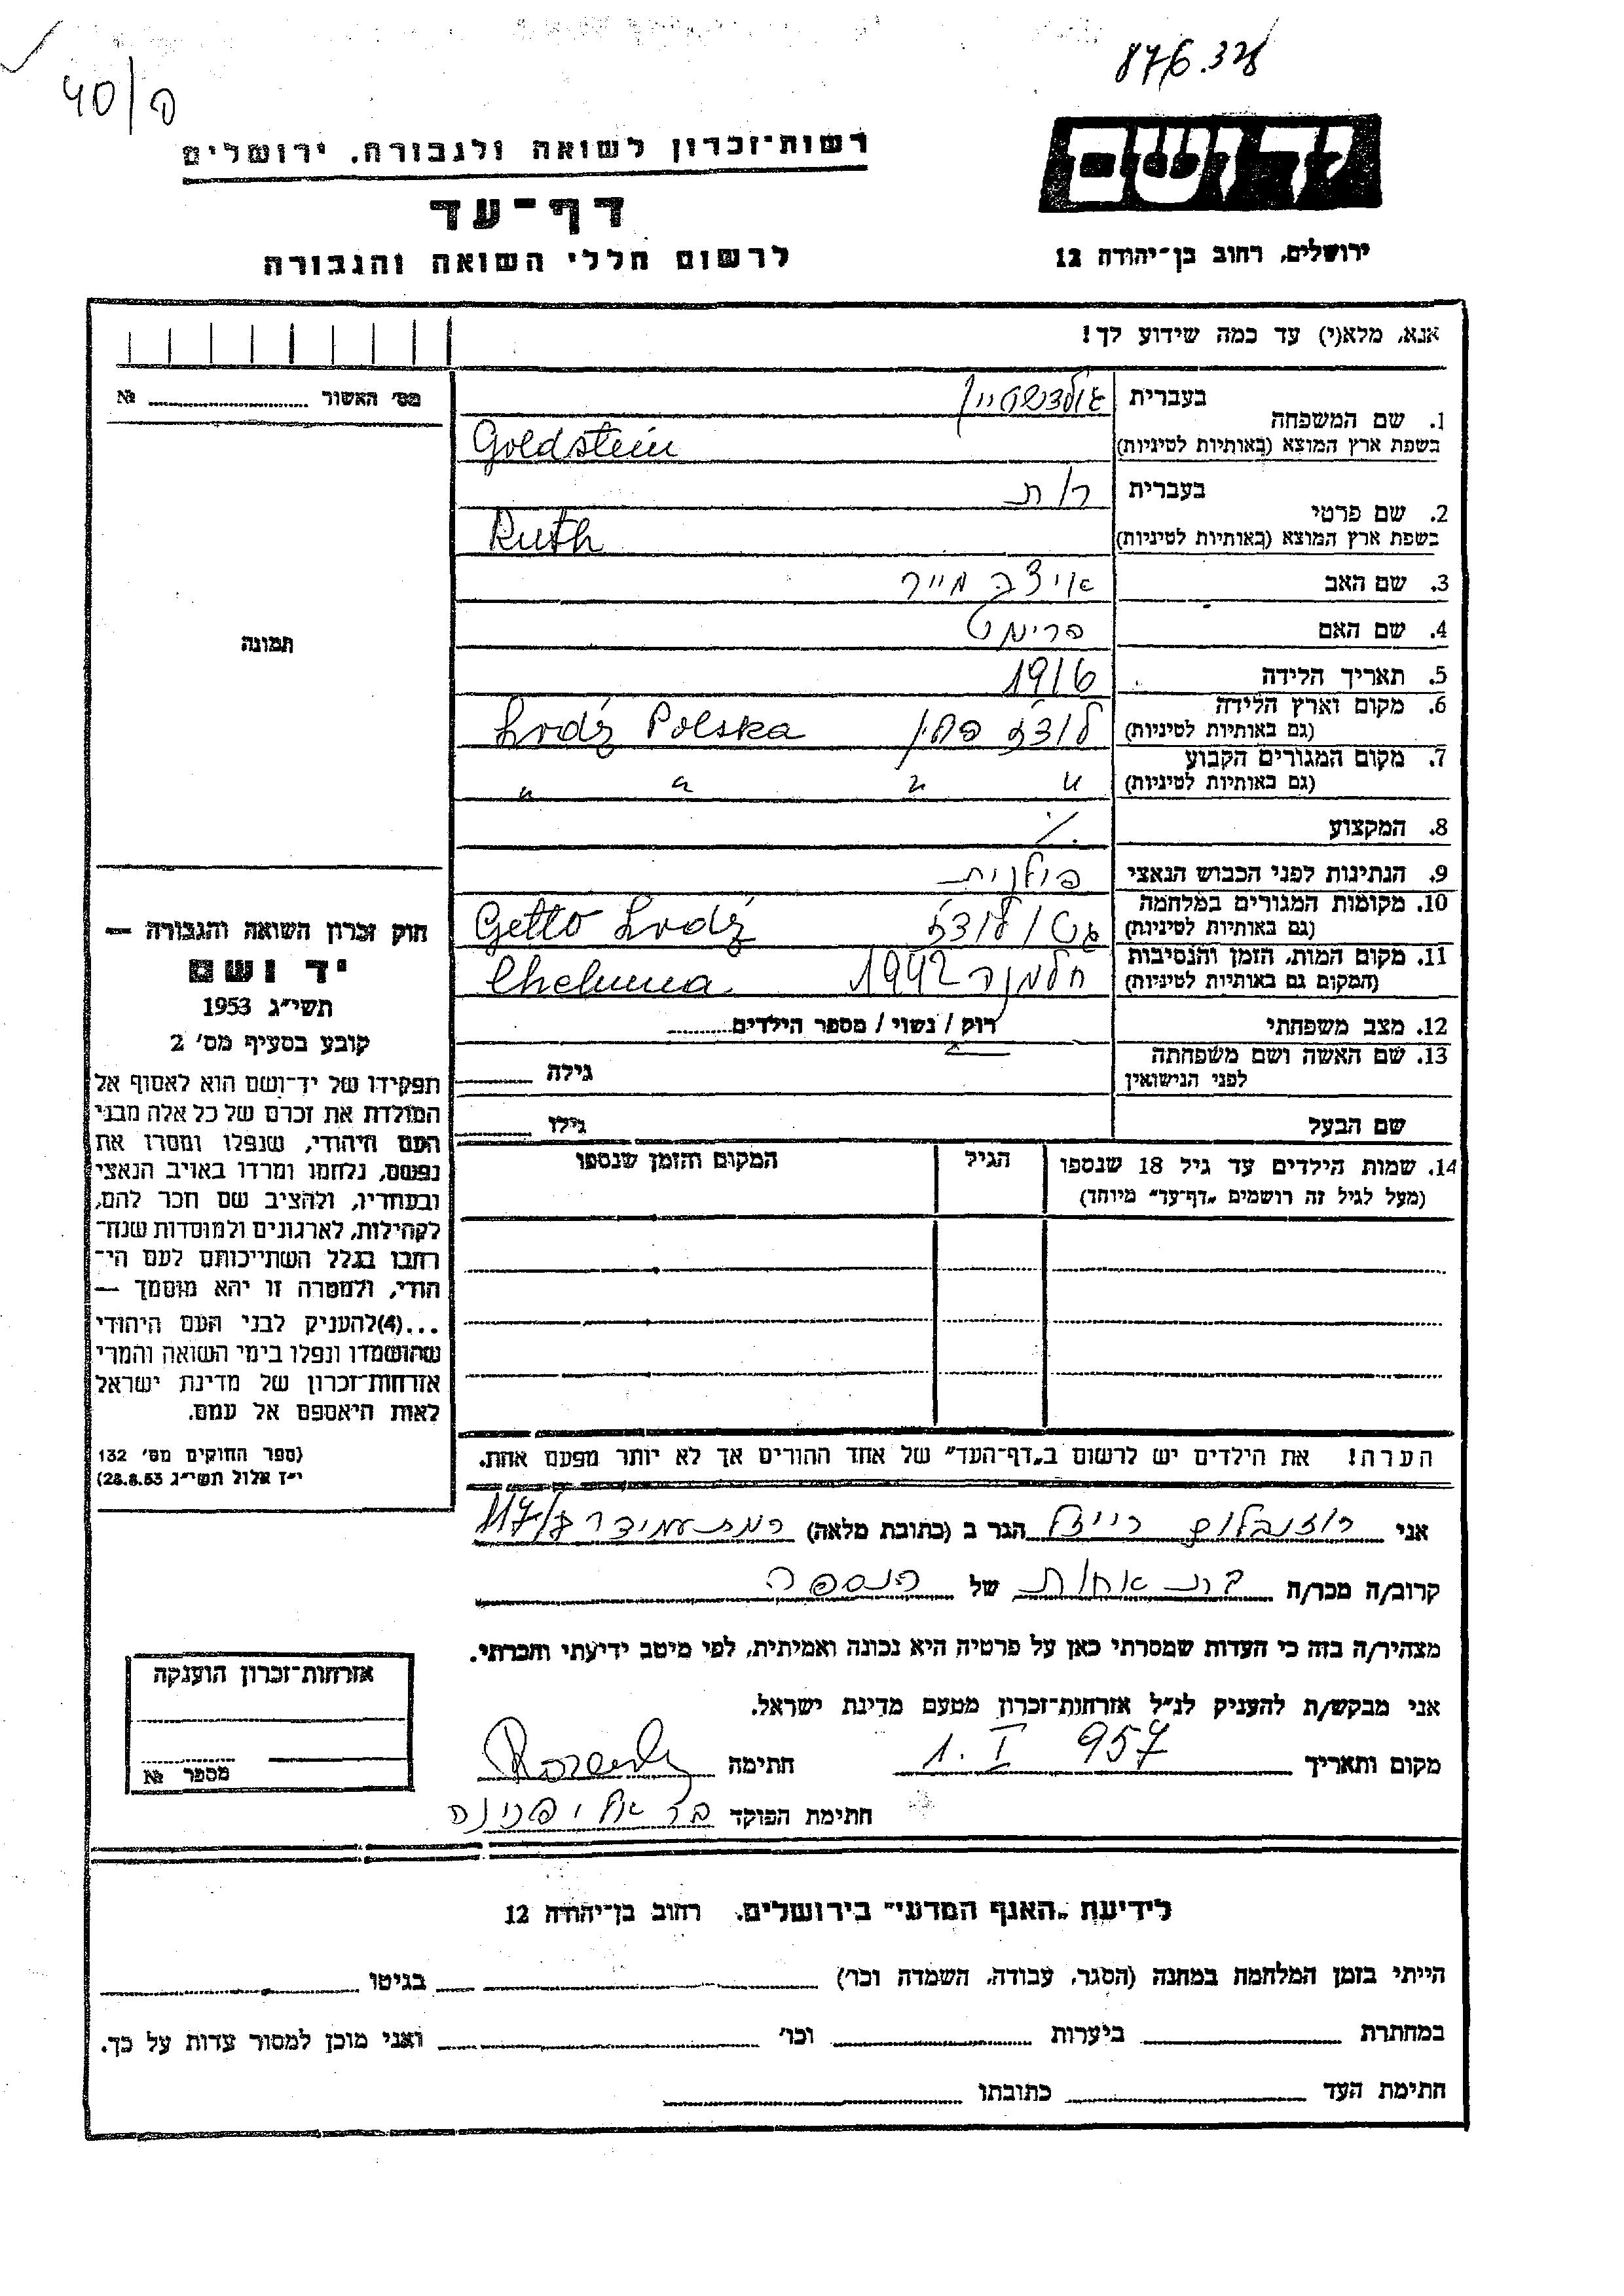 40/פ
876.32
רשות־זכרון לשואה ולגבורה. ירושלים
דף־עד
לרשום חללי השואה והגבורה
יד ושם
ירושלים, רחוב בן־יהודה 12
אנא, מלא(י) עד כמה שידוע לך!
מס' האשור № ........
תמונה
1. שם המשפחה
בעברית גולדשטיין
בשפת ארץ המוצא (באותיות לטיניות) Goldstein
2. שם פרטי
בעברית רות
בשפת ארץ המוצא (באותיות לטיניות) Ruth
3. שם האב איצה מייר
4. שם האם פרימט
5. תאריך הלידה 1916
6. מקום וארץ הלידה
(גם באותיות לטיניות) לודז' פולין Lrodź Polska
7. מקום המגורים הקבוע
(גם באותיות לטיניות) " " " "
8. המקצוע ./.
9. הנתינות לפני הכבוש הנאצי פולנית
10. מקומות המגורים במלחמה
(גם באותיות לטיניות) גטו לודז' Getto Lrodź
11. מקום המות, הזמן והנסיבות
(המקום גם באותיות לטיניות) חלמנה 1942 Chelmna
12. מצב משפחתי רוק / נשוי / מספר הילדים........
13. שם האשה ושם משפחתה
לפני הנישואין גילה ........
שם הבעל גילו ........
14. שמות הילדים עד גיל 18 שנספו הגיל המקום והזמן שנספו
(מעל לגיל זה רושמים „דף־עד" מיוחד)
הערה! את הילדים יש לרשום ב„דף־העד" של אחד ההורים אך לא יותר מפעם אחת.
חוק זכרון השואה והגבורה —
יד ושם
תשי"ג 1953
קובע בסעיף מס' 2
תפקידו של יד־ושם הוא לאסוף אל
המולדת את זכרם של כל אלה מבני
העם היהודי, שנפלו ומסרו את
נפשם, נלחמו ומרדו באויב הנאצי
ובעוזריו, ולהציב שם וזכר להם,
לקהילות, לארגונים ולמוסדות שנח־
רבו בגלל השתייכותם לעם הי־
הודי, ולמטרה זו יהא מוסמך —
...(4)להעניק לבני העם היהודי
שהושמדו ונפלו בימי השואה והמרי
אזרחות־זכרון של מדינת ישראל
לאות היאספם אל עמם.
(ספר החוקים מס' 132
י"ז אלול תשי"ג 28.8.53)
אני רוזנבלום רייזל הגר ב (כתובת מלאה) רמת עמידר 117/
קרוב/ה מכר/ה בת אחות של הנספה
מצהיר/ה בזה כי העדות שמסרתי כאן על פרטיה היא נכונה ואמיתית, לפי מיטב ידיעתי והכרתי.
אני מבקש/ת להעניק לנ"ל אזרחות־זכרון מטעם מדינת ישראל.
מקום ותאריך 1. I 957 חתימה
חתימת הפוקד פנינה
אזרחות־זכרון הוענקה
מספר №
לידיעת „האגף המדעי" בירושלים. רחוב בן־יהודה 12
הייתי בזמן המלחמה במחנה (הסגר, עבודה, השמדה וכו') ........ בגיטו ........
במחתרת ........ ביערות ........ וכו' ........ ואני מוכן למסור עדות על כך.
חתימת העד ........ כתובתו ........